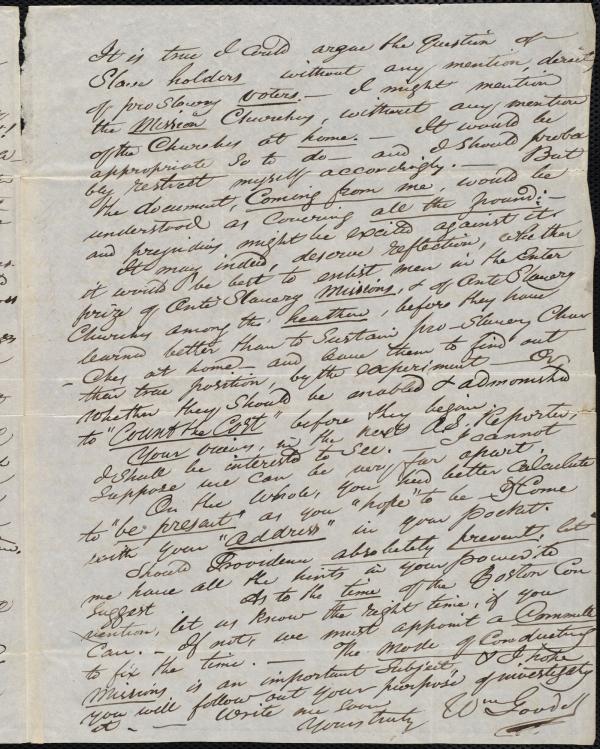 It is true I could argue the question of
Slave holders without any mention, direct
of pro slavery voters. — I might mention
the Mission Churches, without any mention
of the Churches at home. — It would be
appropriate so to do — and I should proba
bly restrict myself accordingly. — But
the document, Coming from me, would be
understood as covering all the ground; —
and prejudices might be excited against it.
It may, indeed, deserve reflection, whether
it would be best to enlist men in the Enter
prize of Anti Slavery Missions, & of Anti Slavery
Churches among the heathen, before they have
learned better than to sustain pro-slavery Chur
-ches at home — and leave them to find out
their true position, by the experiment — Or
whether they should be enabled & admonished
to "Count the Cost" before they begin.
Your views, in the next A.S. Reporter,
I shall be interested to see. — I cannot
suppose we can be very far apart.
On the whole, you had better calculate
to "be present" as you "hope" to be — & Come
with your "address" in your pocket.
Should Providence absolutely prevent, let
me have all the hints in your power to
suggest As to the time of the Boston Con
vention, let us know the right time, if you
Can. — If not, we must appoint a Committee
to fix the time. — The mode of Conducting
Missions is an important subject, & I hope
you will follow out your purpose of investigating
it — — Write me soon
Yours truly Wm Goodell